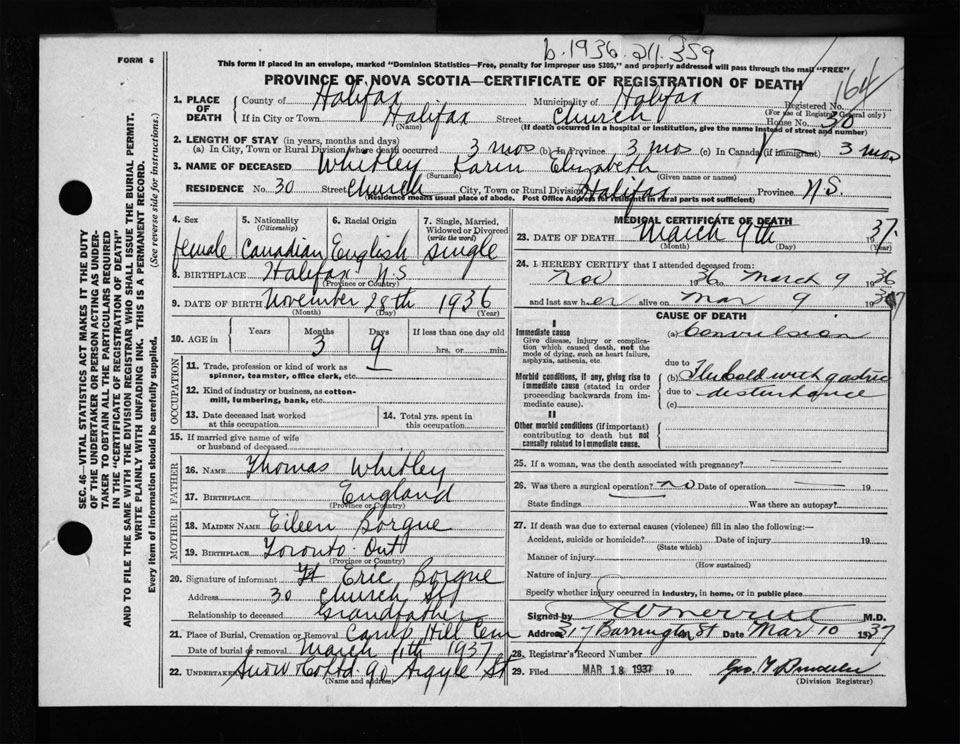 b.1936.211.359
FORM 6
This form if placed in an envelope, marked "Dominion Statistics—Free, penalty for improper use $300," and properly addressed will pass through the mail "FREE"
PROVINCE OF NOVA SCOTIA—CERTIFICATE OF REGISTRATION OF DEATH
164
1. PLACE OF DEATH
County of Halifax Municipality of Halifax Registered No.
(For use of Registrar General only)
If in City or Town Halifax Street Church House No. 30
(Name) (If death occurred in a hospital or institution, give the name instead of street and number)
2. LENGTH OF STAY (in years, months and days)
(a) In City, Town or Rural Division where death occurred 3 mos (b) In Province 3 mos (c) In Canada (if immigrant) 3 mos
3. NAME OF DECEASED Whitley Karin Elizabeth
(Surname) (Given name or names)
RESIDENCE No. 30 Street Church City, Town or Rural Division Halifax Province N.S.
(Residence means usual place of abode. Post Office Address for residents in rural parts not sufficient)
4. Sex 5. Nationality (Citizenship) 6. Racial Origin 7. Single, Married, Widowed or Divorced (write the word)
female Canadian English Single
8. BIRTHPLACE Halifax N.S
(Province or Country)
9. DATE OF BIRTH November 28th 1936
(Month) (Day) (Year)
10. AGE in Years Months Days If less than one day old
3 9 hrs. or min.
OCCUPATION
11. Trade, profession or kind of work as spinner, teamster, office clerk, etc.
12. Kind of industry or business, as cotton-mill, lumbering, bank, etc.
13. Date deceased last worked at this occupation
14. Total yrs. spent in this occupation
15. If married give name of wife or husband of deceased
FATHER
16. NAME Thomas Whitley
17. BIRTHPLACE England
(Province or Country)
MOTHER
18. MAIDEN NAME Eileen Borgue
19. BIRTHPLACE Toronto Ont
(Province or Country)
20. Signature of informant Eric Borgue
Address 30 Church St
Relationship to deceased Grandfather
21. Place of Burial, Cremation or Removal Camp Hill Cem
Date of burial or removal March 11th 1937
22. UNDERTAKER Snow Co Ltd 90 Argyle St
(Name and address)
MEDICAL CERTIFICATE OF DEATH
23. DATE OF DEATH March 9th 1937.
(Month) (Day) (Year)
24. I HEREBY CERTIFY that I attended deceased from:
Nov 1936 to March 9 1936
and last saw her alive on Mar 9 1937
CAUSE OF DEATH
I
Immediate cause
Give disease, injury or complication which caused death, not the mode of dying, such as heart failure, asphyxia, asthenia, etc
(a) Convulsion
due to
Morbid conditions, if any, giving rise to immediate cause (stated in order proceeding backwards from immediate cause).
(b) Flu cold with gastric
due to disturbance
(c)
II
Other morbid conditions (if important) contributing to death but not causally related to immediate cause.
25. If a woman, was the death associated with pregnancy?
26. Was there a surgical operation? no Date of operation 19
State findings Was there an autopsy?
27. If death was due to external causes (violence) fill in also the following:—
Accident, suicide or homicide? Date of injury 19
(State which)
Manner of injury
(How sustained)
Nature of injury
Specify whether injury occurred in industry, in home, or in public place
Signed by M.D.
Address 317 Barrington St Date Mar 10 1937
28. Registrar's Record Number
29. Filed MAR 18 1937 19
(Division Registrar)
SEC. 46—VITAL STATISTICS ACT MAKES IT THE DUTY
OF THE UNDERTAKER OR PERSON ACTING AS UNDERTAKER
TO OBTAIN ALL THE PARTICULARS REQUIRED
IN THE "CERTIFICATE OF REGISTRATION OF DEATH"
AND TO FILE THE SAME WITH THE DIVISION REGISTRAR WHO SHALL ISSUE THE BURIAL PERMIT.
WRITE PLAINLY WITH UNFADING INK. THIS IS A PERMANENT RECORD.
Every item of information should be carefully supplied. (See reverse side for instructions.)